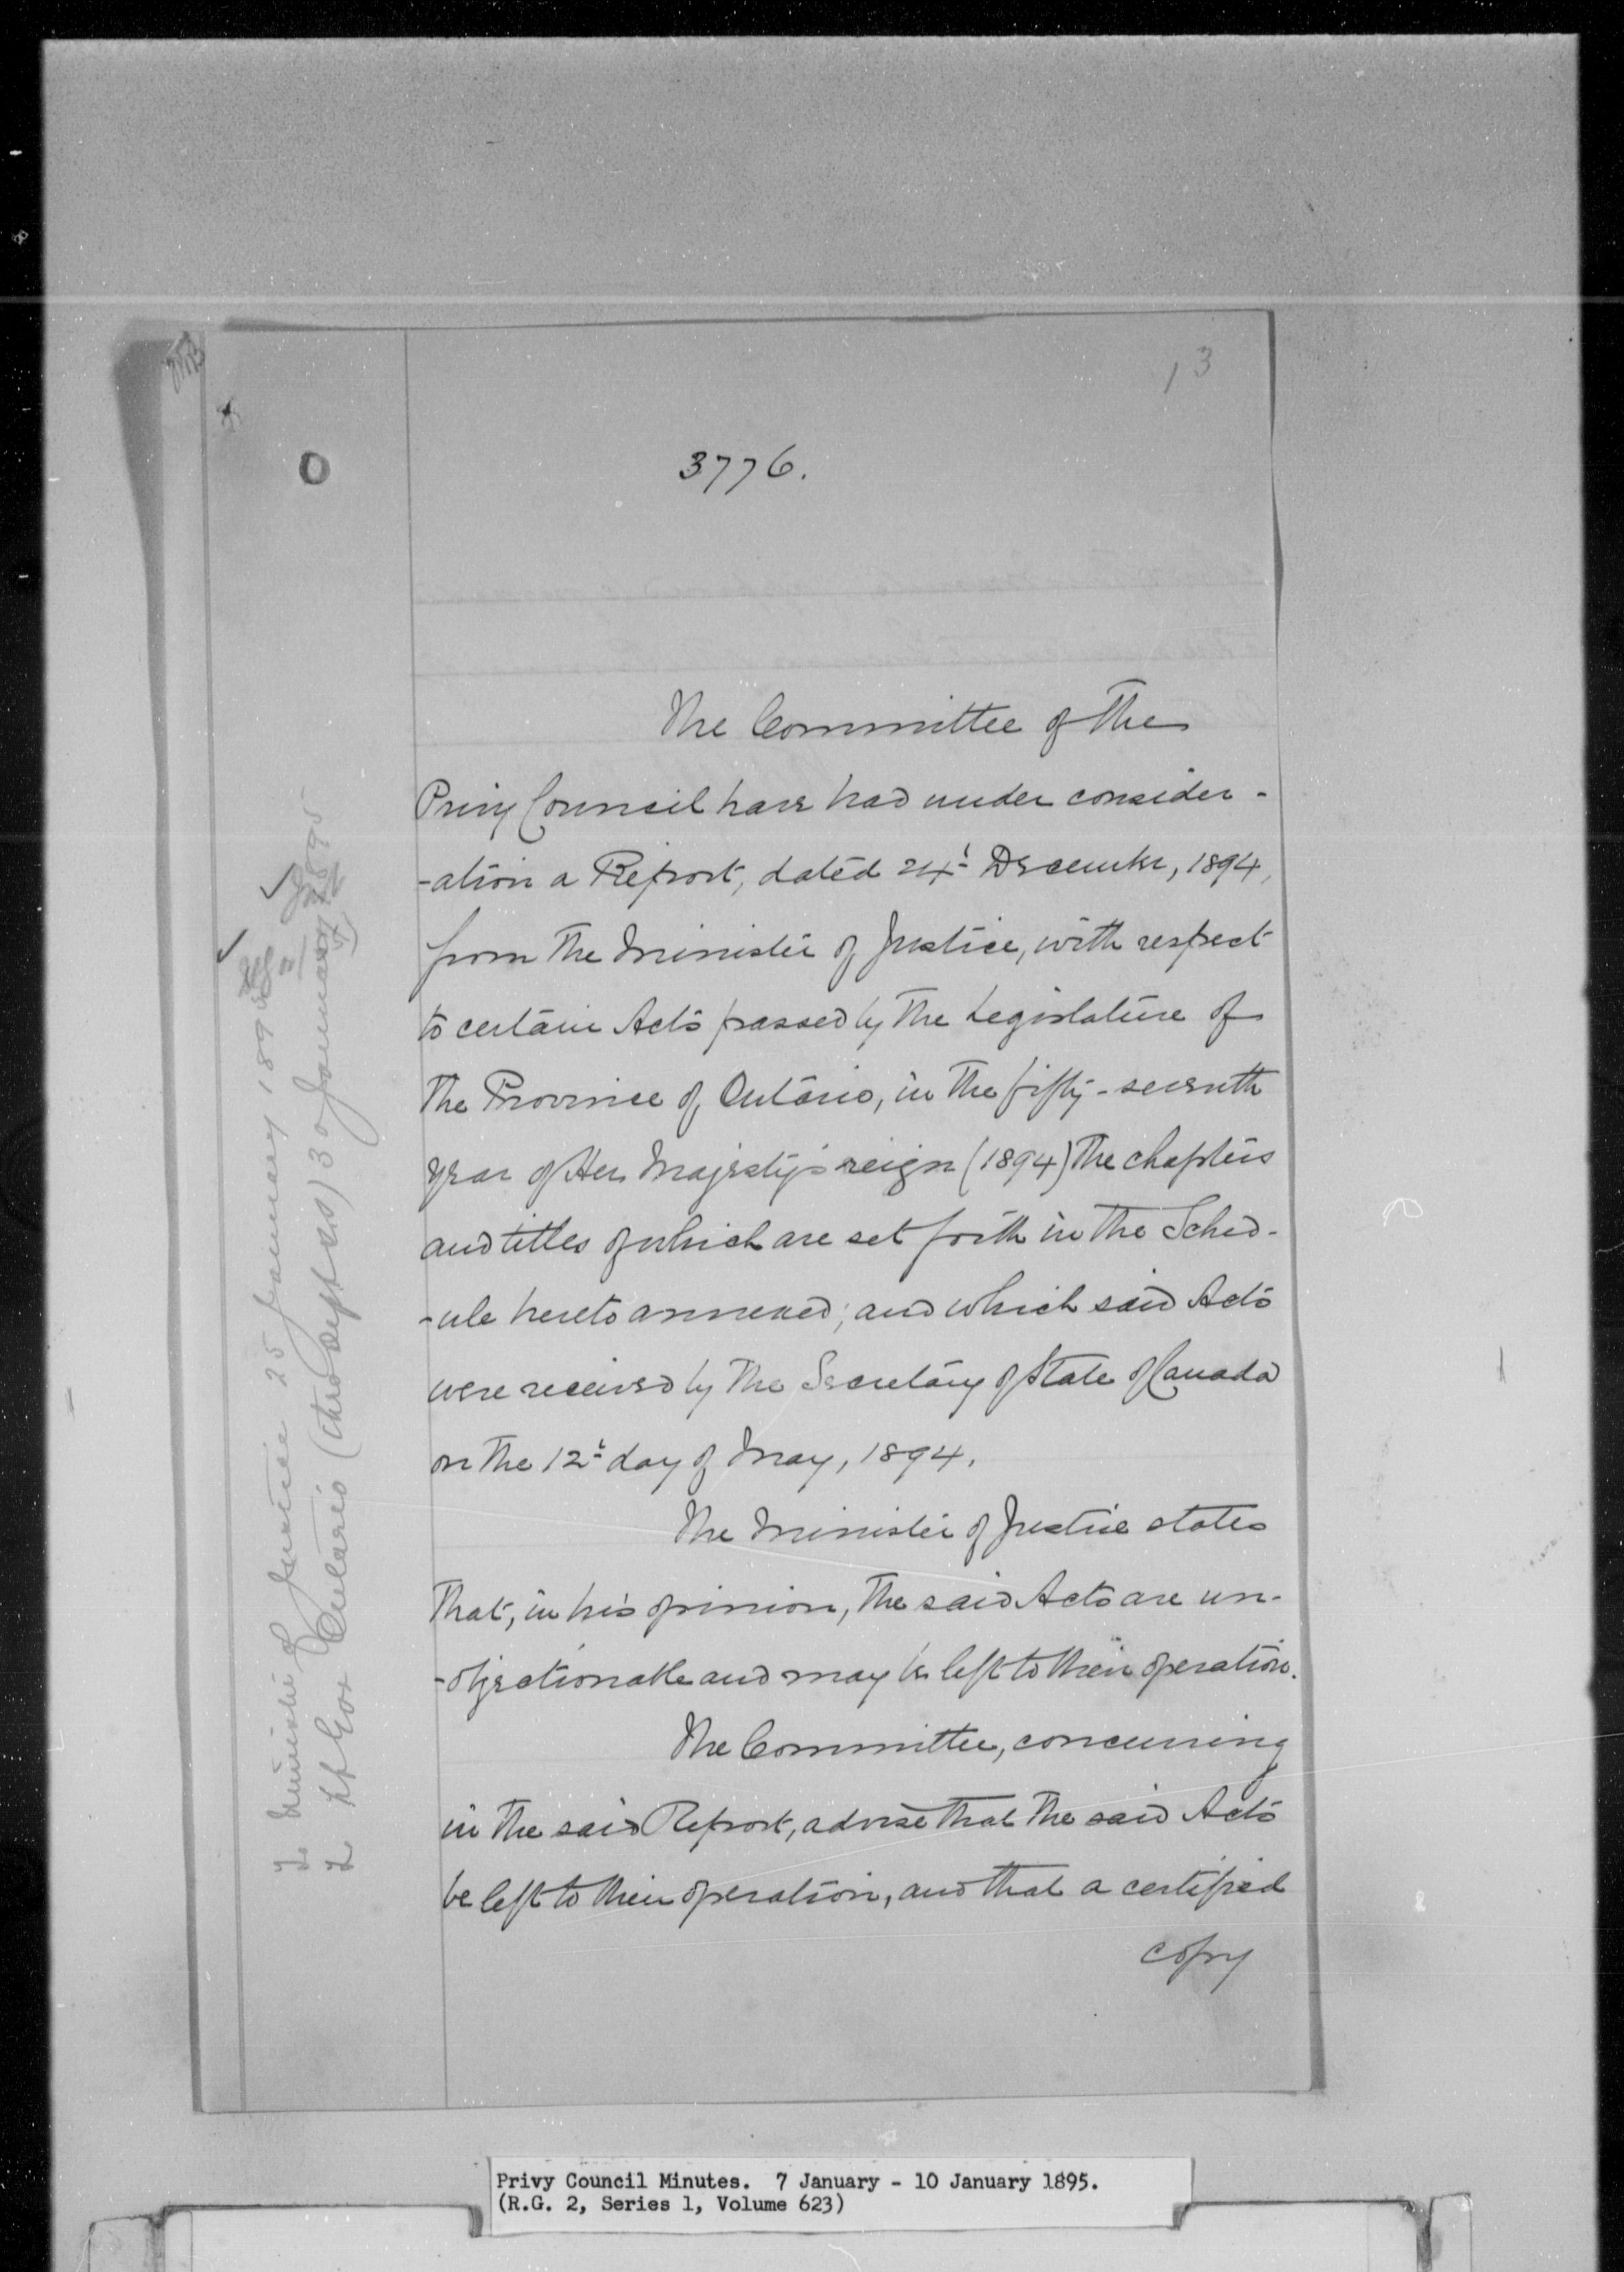 13
3776.
The Committee of the
Privy Council have had under consider-
-ation a Report, dated 24t December, 1894,
from the Minister of Justice, with respect
to certain Acts passed by the Legislature of
the Province of Ontario, in the fifty-seventh
year of Her Majesty's reign (1894) the chapters
and titles of which are set forth in the Sched-
-ule hereto annexed; and which said Acts
were received by the Secretary of State of Canada
on the 12t day of May, 1894.
The Minister of Justice states
that, in his opinion, the said Acts are un-
-objectionable and may be left to their operation.
The Committee, concurring
in the said Report, advise that the said Acts
be left to their operation, and that a certified
copy
To Minister of Justice 25 January 1895
To Lt Gov Ontario (thro Sec of State) 30 January 1895
Privy Council Minutes. 7 January - 10 January 1895.
(R.G. 2, Series 1, Volume 623)